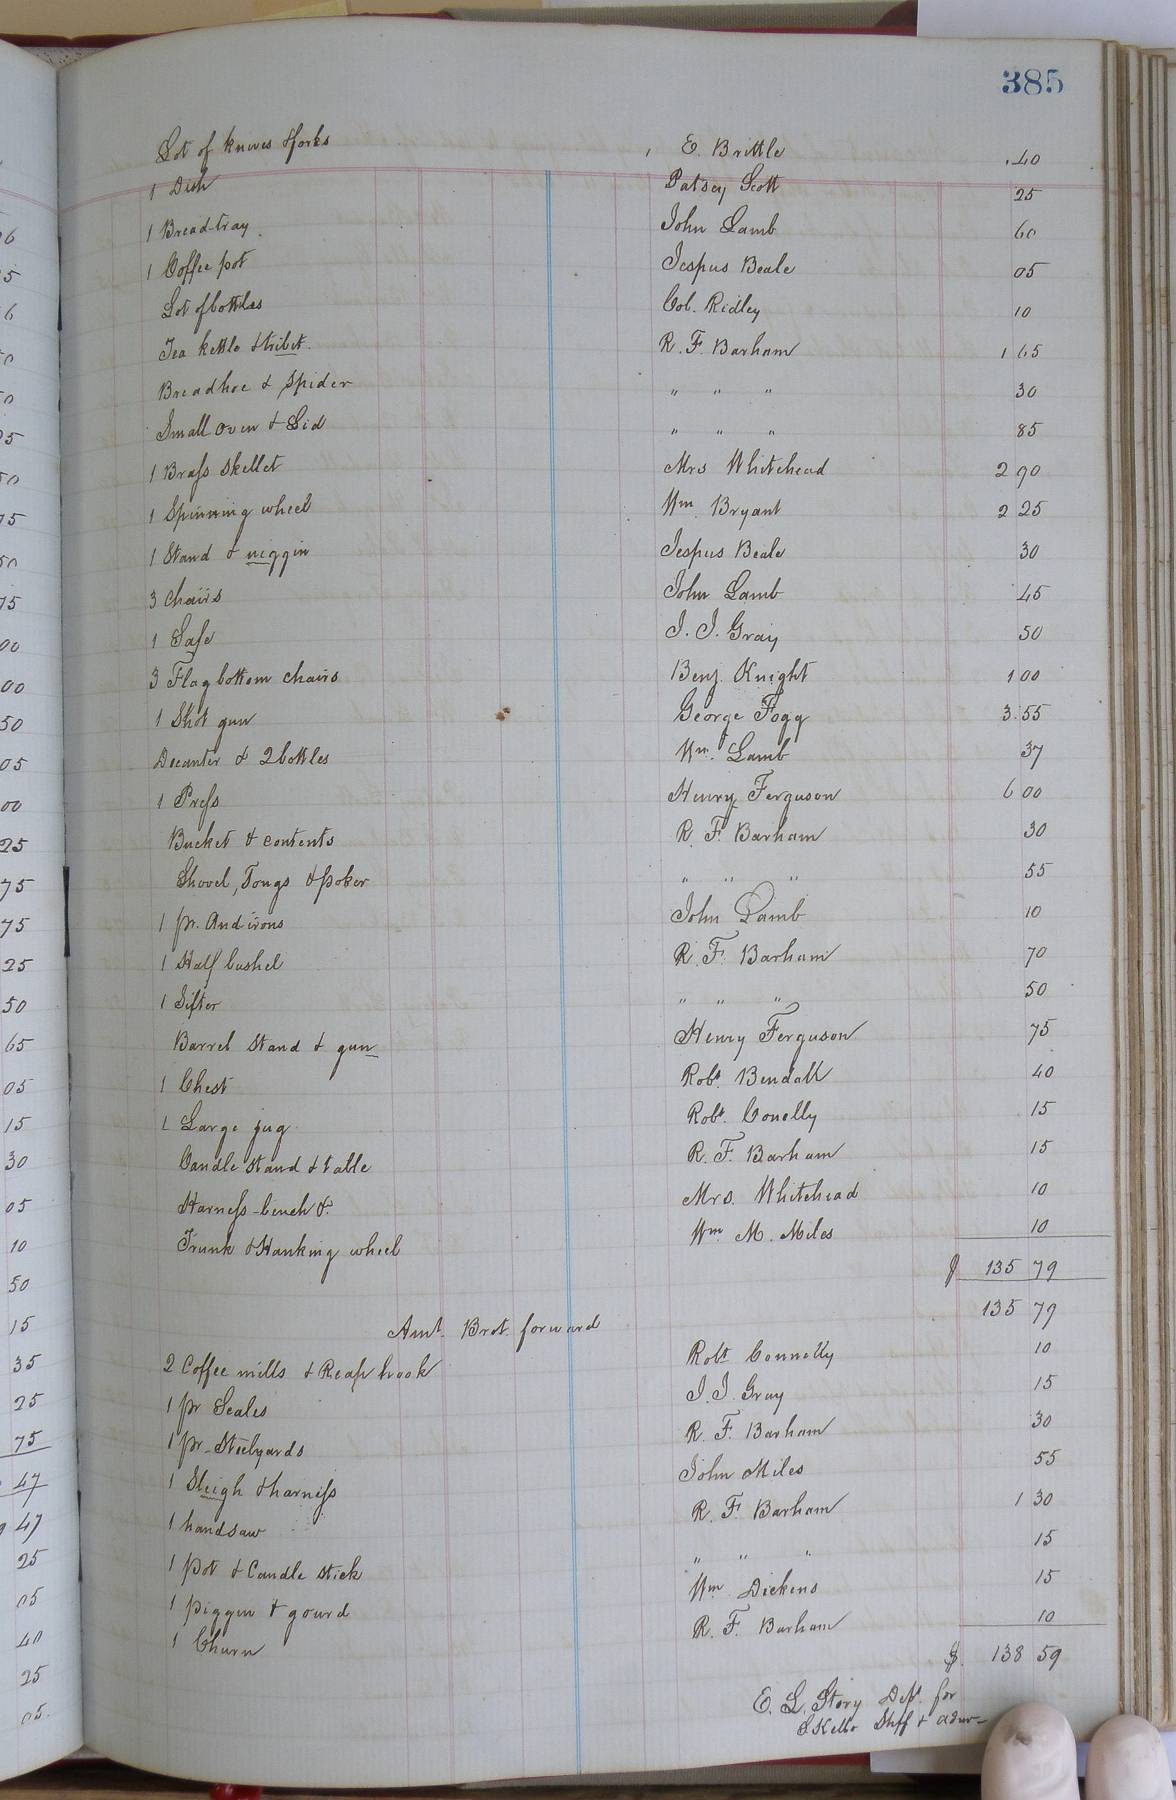 385
Lot of knives & forks E. Brittle .40
1 Dish Patsey Scott 25
1 Bread-tray John Lamb 60
1 Coffee pot Jespus Beale 05
Lot of bottles Cob. Ridley 10
Tea kettle & tribet. R. F. Barham 1 65
Breadhoe & Spider " " " 30
Small oven & Lid " " " 85
1 Brass Skellet Mrs Whitehead 2 90
1 Spinning wheel Wm Bryant 2 25
1 Stand & niggin Jespus Beale 30
3 Chairs John Lamb 45
1 Safe J. J. Gray 50
3 Flag bottom chairs Benj. Knight 1 00
1 Shot gun George Fogg 3.55
Decanter & 2 bottles Wm. Lamb 37
1 Press Henry Ferguson 6 00
Bucket & contents R. F. Barham 30
Shovel, Tongs & poker " " " 55
1 pr. Andirons John Lamb 10
1 Half bushel R. F. Barham 70
1 Sifter " " " 50
Barrel Stand & gun Henry Ferguson 75
1 Chest Robt. Bendall 40
1 Large jug Robt. Conelly 15
Candle stand & table R. F. Barham 15
Harness-bench &. Mrs. Whitehead 10
Trunk & Hanking wheel Wm M. Miles 10
$ 135 79
Amt. Brot. forward 135 79
2 Coffee mills & Reap hook Robt Connelly 10
1 pr Scales J. J. Gray 15
1 pr-Steelyards R. F. Barham 30
1 Sleigh & harness John Miles 55
1 handsaw R. F. Barham 1 30
1 pot & Candle stick " " " 15
1 piggin & gourd Wm Dickens 15
1 Churn R. F. Barham 10
$. 138 59
E. L. Story Dept. for
Shff & admr-